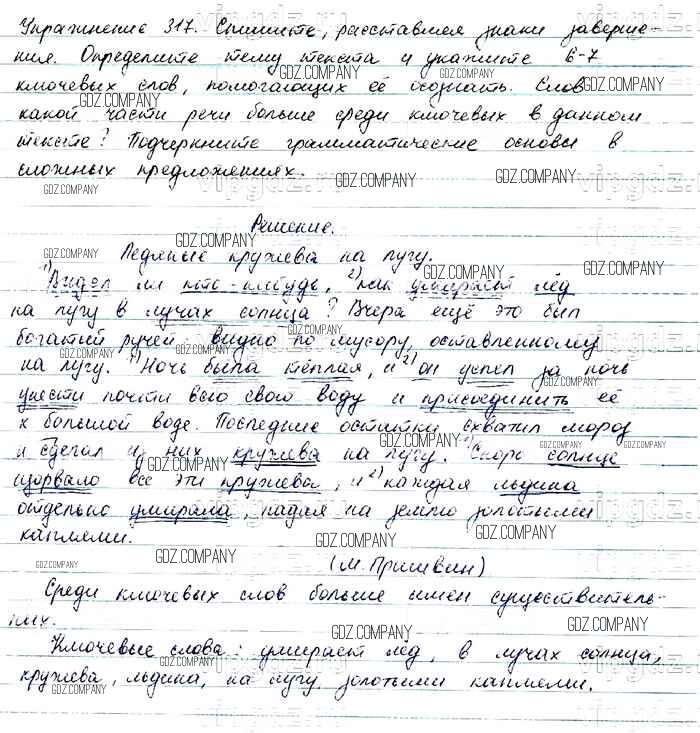 Упражнение 317. Спишите, расставляя знаки заверше-
ния. Определите тему текста и укажите 6-7
ключевых слов, помогающих её осознать. Слов
какой части речи больше среди ключевых в данном
тексте? Подчеркните грамматические основы в
сложных предложениях.
Решение.
Ледяные кружева на лугу.
1) Видел ли кто-нибудь, 2) как умирает лёд
на лугу в лучах солнца? Вчера ещё это был
богатый ручей видно по мусору, оставленному
на лугу. 1) Ночь была тёплая, и 2) он успел за ночь
унести почти всю свою воду и присоединить её
к большой воде. Последние остатки схватил мороз
и сделал из них кружева на лугу. 1) Скоро солнце
изорвало все эти кружева, и 2) каждая льдинка
отдельно умирала, падая на землю золотыми
каплями.
(М. Пришвин)
Среди ключевых слов больше имён существитель-
ных.
Ключевые слова: умирает лёд, в лучах солнца,
кружева, льдинка, на лугу золотыми каплями.
GDZ.COMPANY
vipgdz.ru